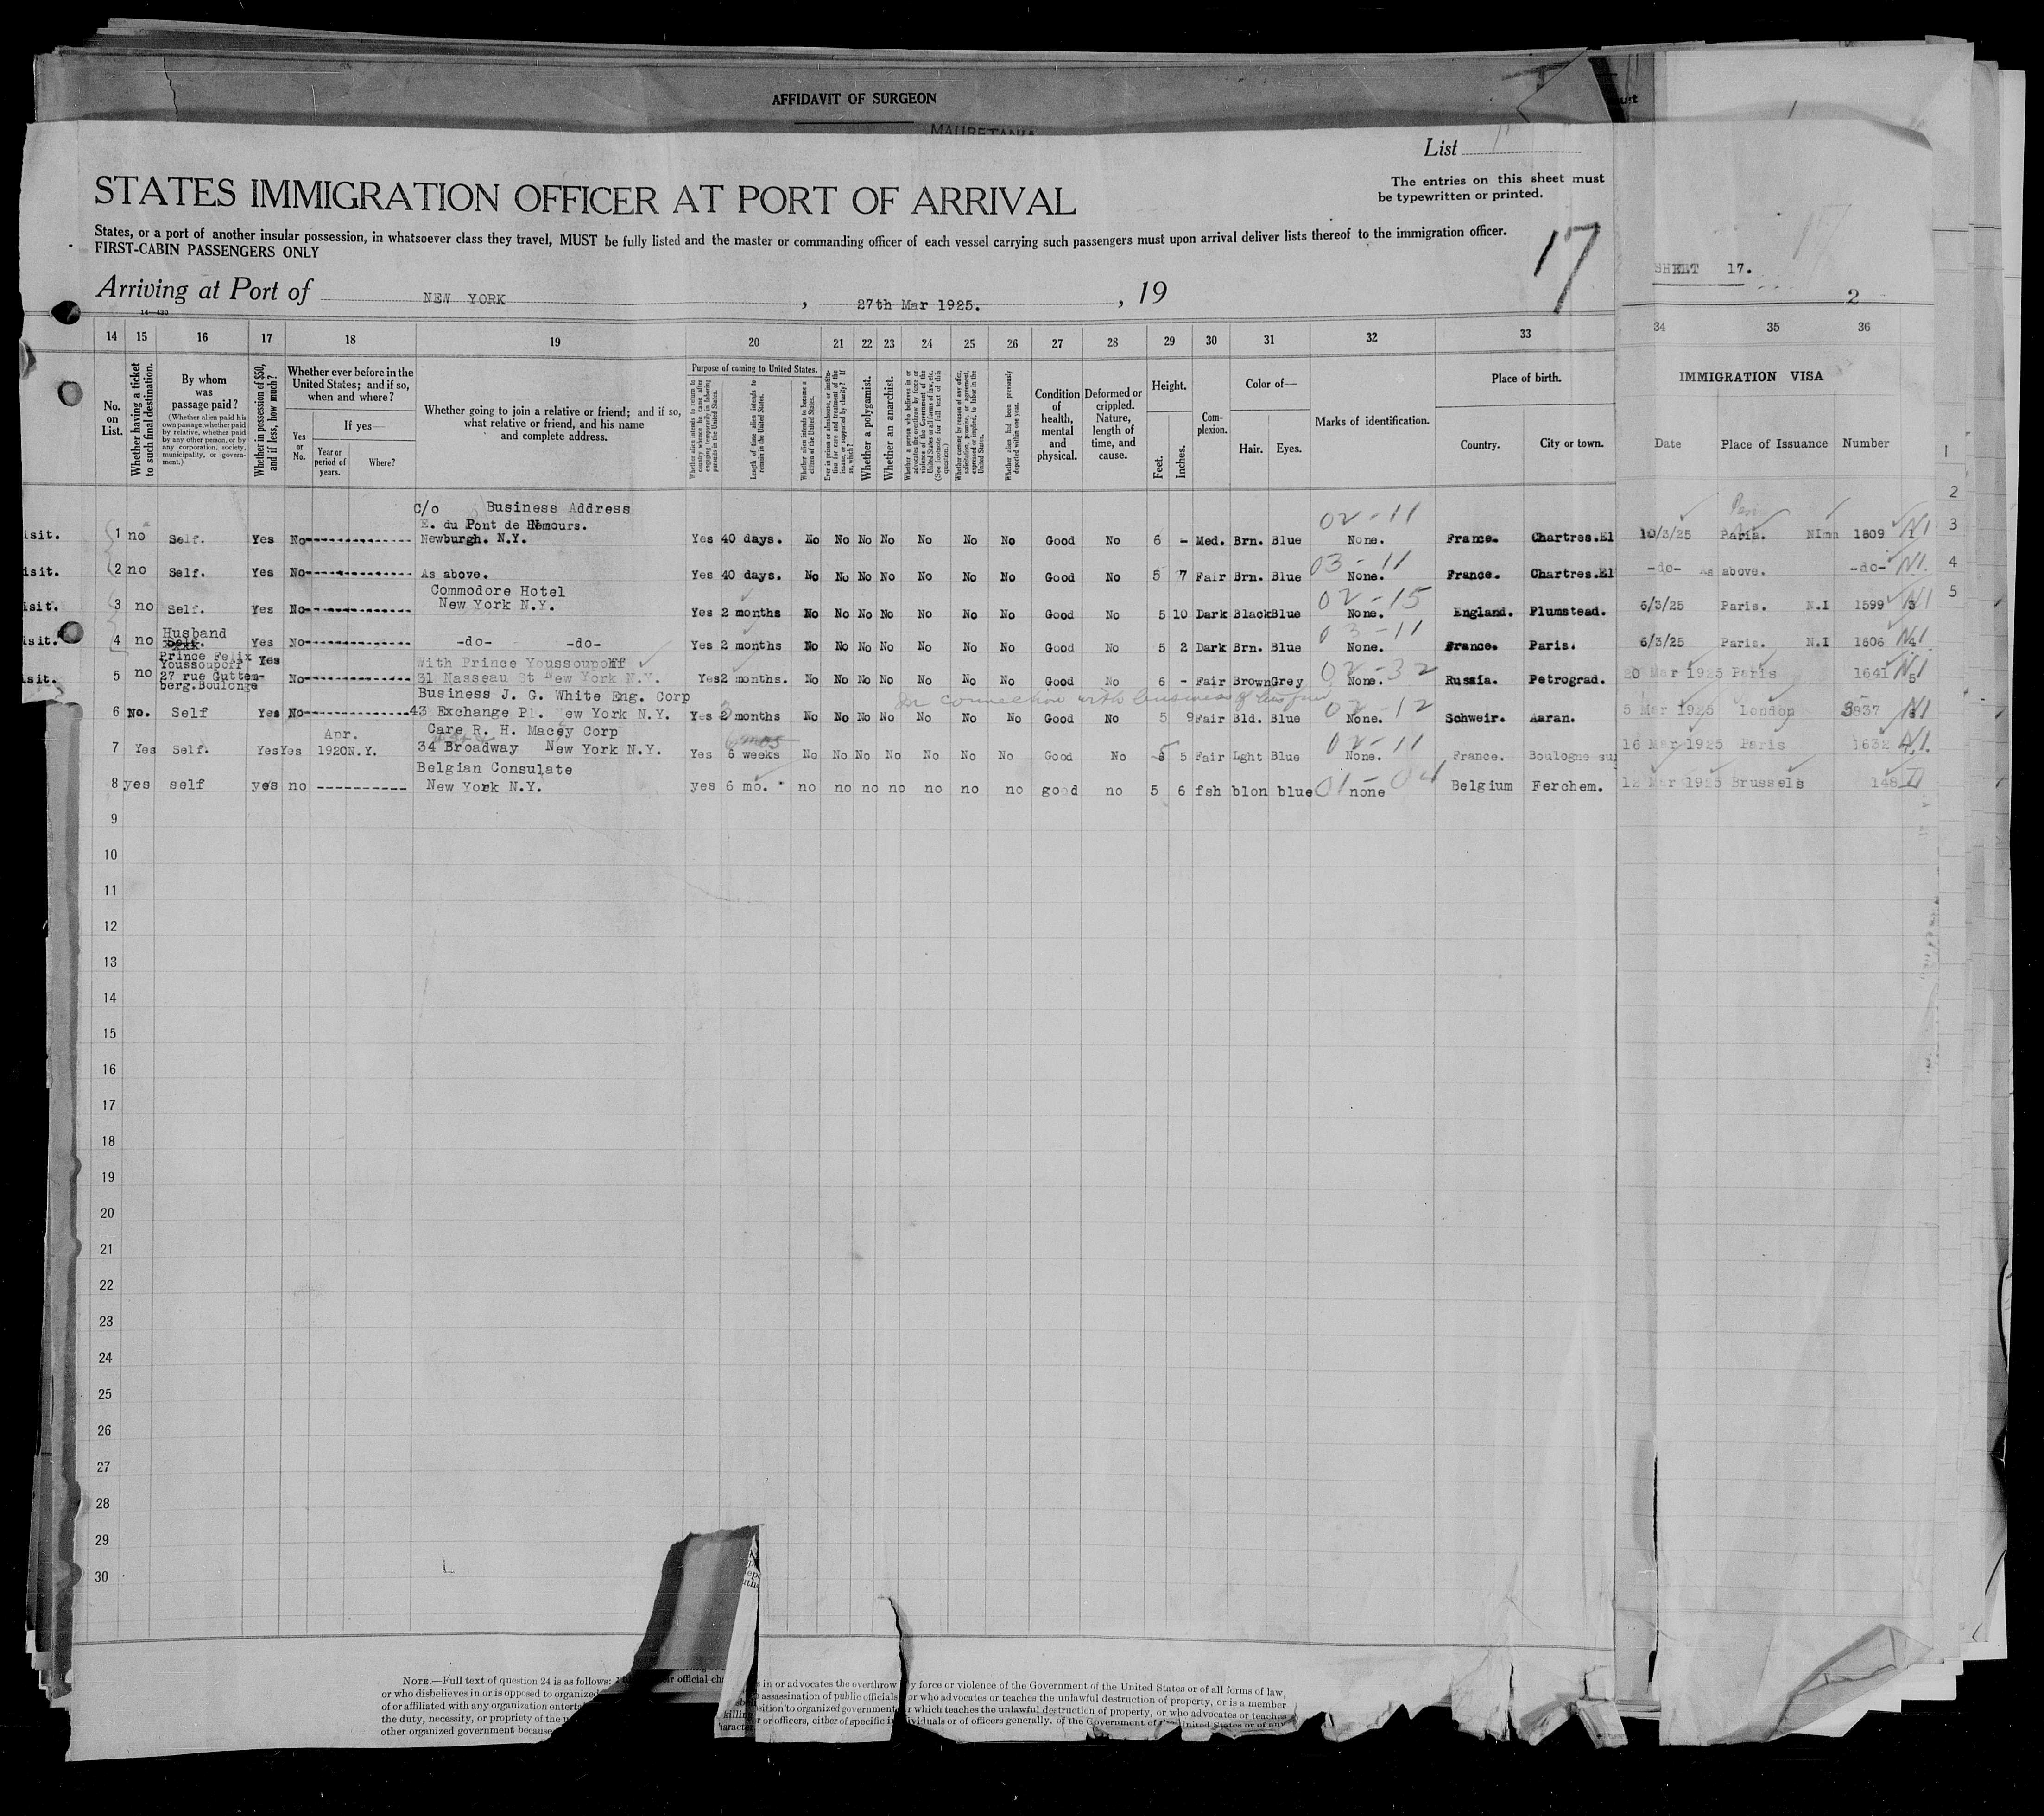 AFFIDAVIT OF SURGEON
MAURETANIA
List
STATES IMMIGRATION OFFICER AT PORT OF ARRIVAL
The entries on this sheet must
be typewritten or printed.
States, or a port of another insular possession, in whatsoever class they travel, MUST be fully listed and the master or commanding officer of each vessel carrying such passengers must upon arrival deliver lists thereof to the immigration officer.
FIRST-CABIN PASSENGERS ONLY
17
SHEET 17.
2
Arriving at Port of NEW YORK , 27th Mar 1925. , 19
14 15 16 17 18 19 20 21 22 23 24 25 26 27 28 29 30 31 32 33 34 35 36
No. on List.
Whether having a ticket to such final destination.
By whom was passage paid?
(Whether alien paid his own passage, whether paid by relative, whether paid by any other person, or by any corporation, society, municipality, or government.)
Whether in possession of $50, and if less, how much?
Whether ever before in the United States; and if so, when and where?
Yes or No.
If yes—
Year or period of years.
Where?
Whether going to join a relative or friend; and if so, what relative or friend, and his name and complete address.
Purpose of coming to United States.
Length of time alien intends to remain in the United States.
Whether alien intends to become a citizen of the United States.
Whether a polygamist.
Whether an anarchist.
Condition of health, mental and physical.
Deformed or crippled. Nature, length of time, and cause.
Height.
Feet.
Inches.
Complexion.
Color of—
Hair.
Eyes.
Marks of identification.
Place of birth.
Country.
City or town.
IMMIGRATION VISA
Date
Place of Issuance
Number
c/o Business Address
E. du Pont de Nemours.
02-11
isit. 1 no Self. Yes No Newburgh. N.Y. Yes 40 days. No No No No No No No Good No 6 - Med. Brn. Blue None. France. Chartres.El 10/3/25 Paris. 1609 NI
03-11
isit. 2 no Self. Yes No As above. Yes 40 days. No No No No No No No Good No 5 7 Fair Brn. Blue None. France. Chartres.El -do- As above. -do- NI.
Commodore Hotel
02-15
isit. 3 no Self. Yes No New York N.Y. Yes 2 months No No No No No No No Good No 5 10 Dark Black Blue None. England. Plumstead. 6/3/25 Paris. N.I 1599
Husband
03-11
isit. 4 no Self. Yes No -do- -do- Yes 2 months No No No No No No No Good No 5 2 Dark Brn. Blue None. France. Paris. 6/3/25 Paris. N.I 1606 NI
Prince Felix
Youssoupoff Yes With Prince Youssoupoff
02-32
isit. 5 no 27 rue Gutten- No 31 Nasseau St New York N.Y. Yes 2 months. No No No No No No No Good No 6 - Fair Brown Grey None. Russia. Petrograd. 20 Mar 1925 Paris 1641 NI
berg.Boulonge
Business J. G. White Eng. Corp
in connection with business of his firm
02-12
6 No. Self Yes No 43 Exchange Pl. New York N.Y. Yes 2 months No No No No No No No Good No 5 9 Fair Bld. Blue None. Schweir. Aaran. 5 Mar 1925 London 3837 NI
Apr. Care R. H. Macey Corp
6 mos
02-11
7 Yes Self. Yes Yes 1920 N.Y. 34 Broadway New York N.Y. Yes 6 weeks No No No No No No No Good No 5 5 Fair Lght Blue None. France. Boulogne su 16 Mar 1925 Paris 1632 NI.
Belgian Consulate
01-04
8 yes self yes no New York N.Y. yes 6 mo. no no no no no no no good no 5 6 fsh blon blue none Belgium Ferchem. 12 Mar 1925 Brussels 148
9
10
11
12
13
14
15
16
17
18
19
20
21
22
23
24
25
26
27
28
29
30
1
2
3
4
5
NOTE.—Full text of question 24 is as follows:
in or advocates the overthrow by force or violence of the Government of the United States or of all forms of law,
or who disbelieves in or is opposed to organized
assassination of public officials, or who advocates or teaches the unlawful destruction of property, or is a member
of or affiliated with any organization
sition to organized government, or which teaches the unlawful destruction of property, or who advocates or teaches
the duty, necessity, or propriety of the
killing
or officers, either of specific individuals or of officers generally, of the Government of the United States or of any
other organized government because